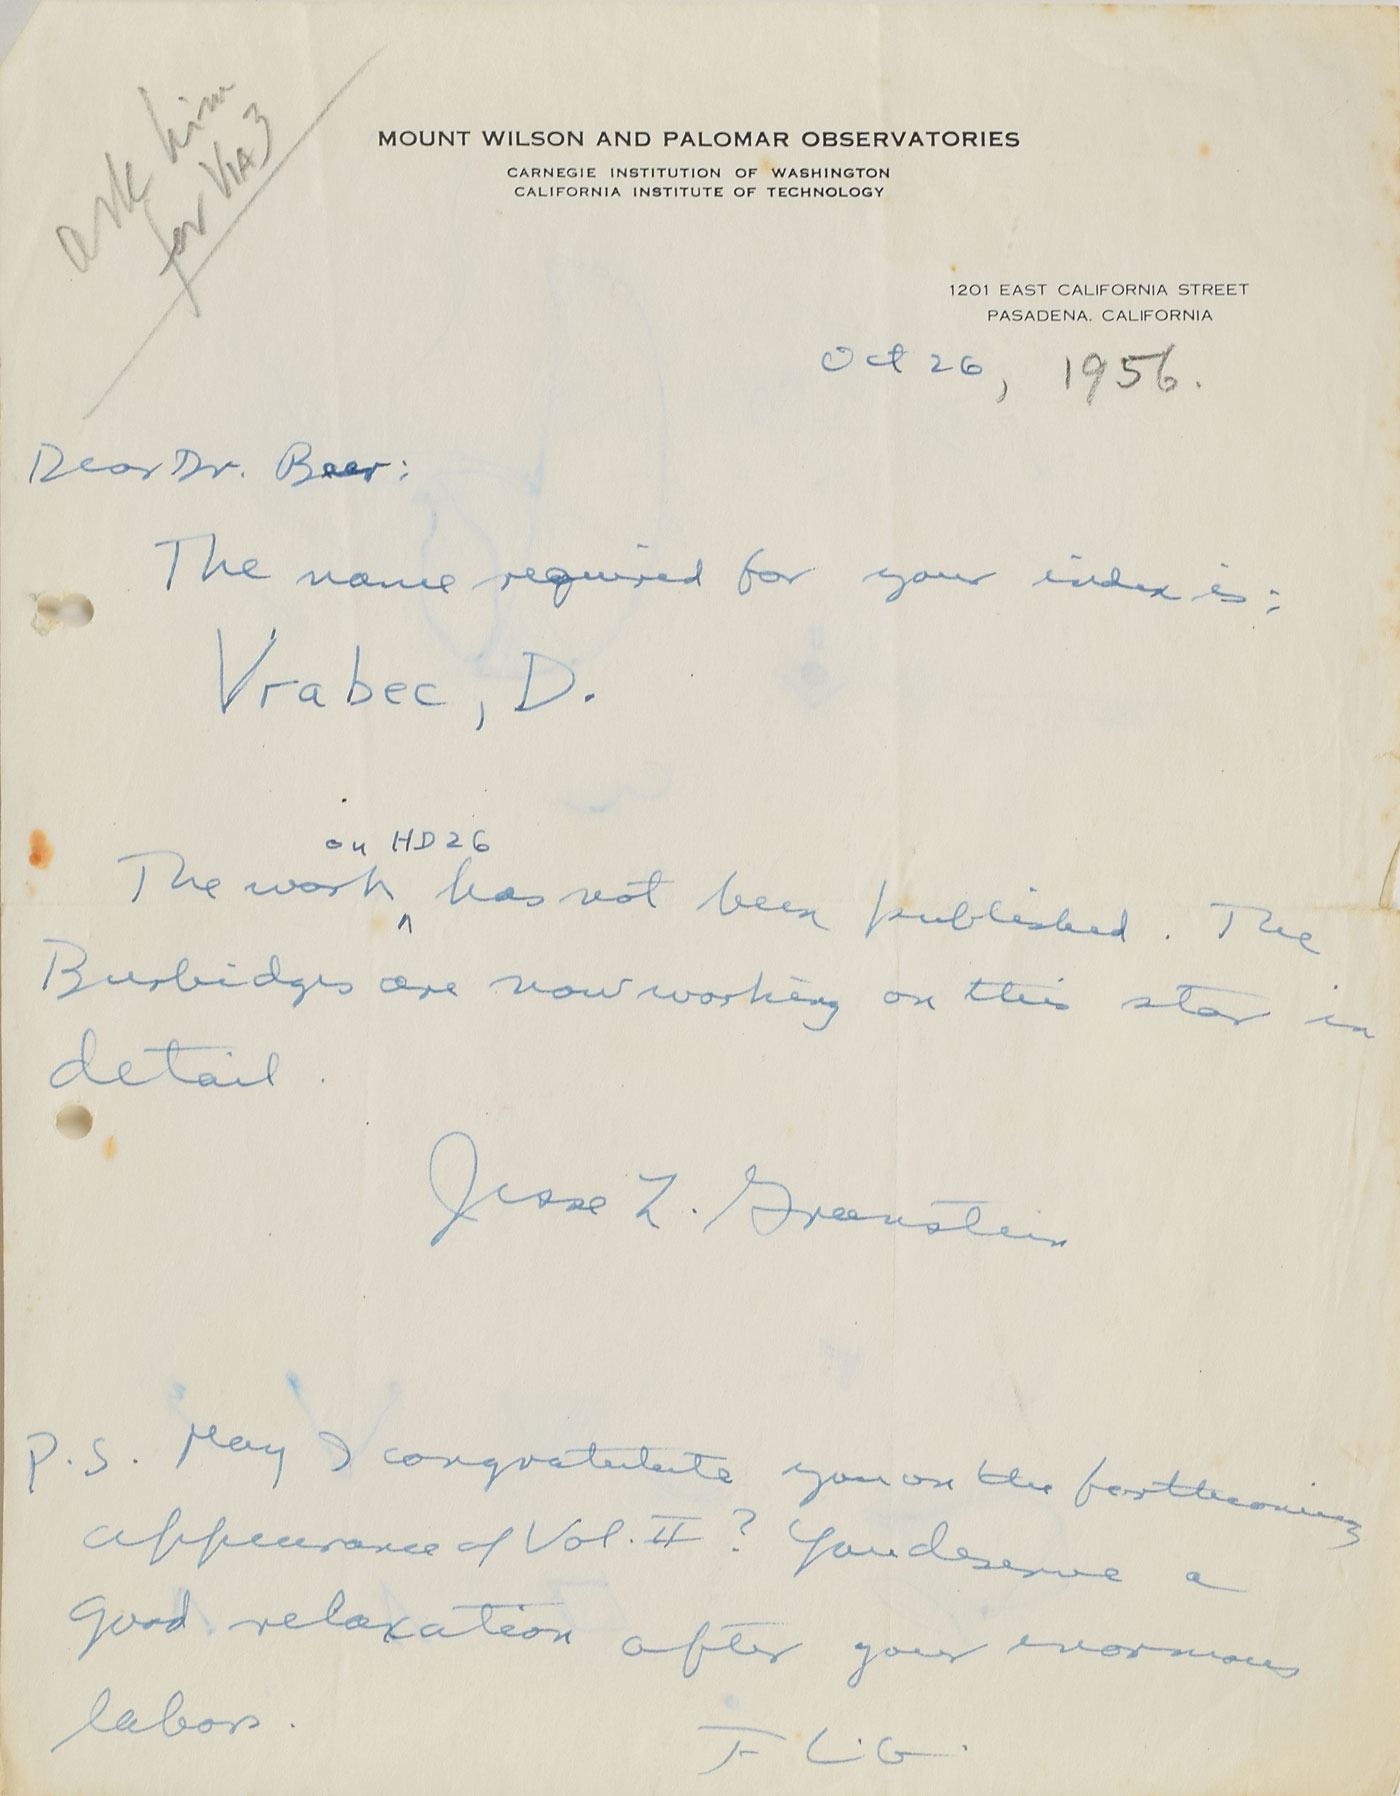 ask him
for VIA3
MOUNT WILSON AND PALOMAR OBSERVATORIES
CARNEGIE INSTITUTION OF WASHINGTON
CALIFORNIA INSTITUTE OF TECHNOLOGY
1201 EAST CALIFORNIA STREET
PASADENA, CALIFORNIA
Oct 26, 1956.
Dear Dr. Beer:
The name required for your index is:
Vrabec, D.
on HD26
The work ^ has not been published. The
Burbidges are now working on this star in
detail.
Jesse L. Greenstein
P.S. May I congratulate you on the forthcoming
appearance of Vol. II? You deserve a
good relaxation after your enormous
labors.
J L.G.